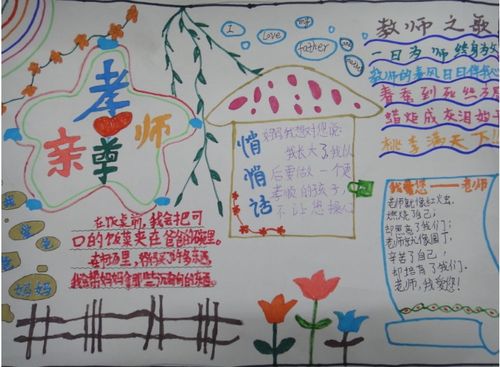 孝
亲 尊 师
I love my father and
教师之歌
一日为师终身
教师的春风日日
春蚕到死丝
蜡炬成灰泪始干
桃李满天下
悄悄话
妈妈我想对您说:
我长大了我以
后要做一个更
孝顺的孩子,
不让您操心
在饭桌前,我会把可
口的饭菜夹在爸爸的碗里。
妈妈
我爱您——老师
老师就像红火虫,
燃烧自己;
却照亮了我们;
老师就像园丁,
辛苦了自己,
却培育了我们。
老师,我爱您!